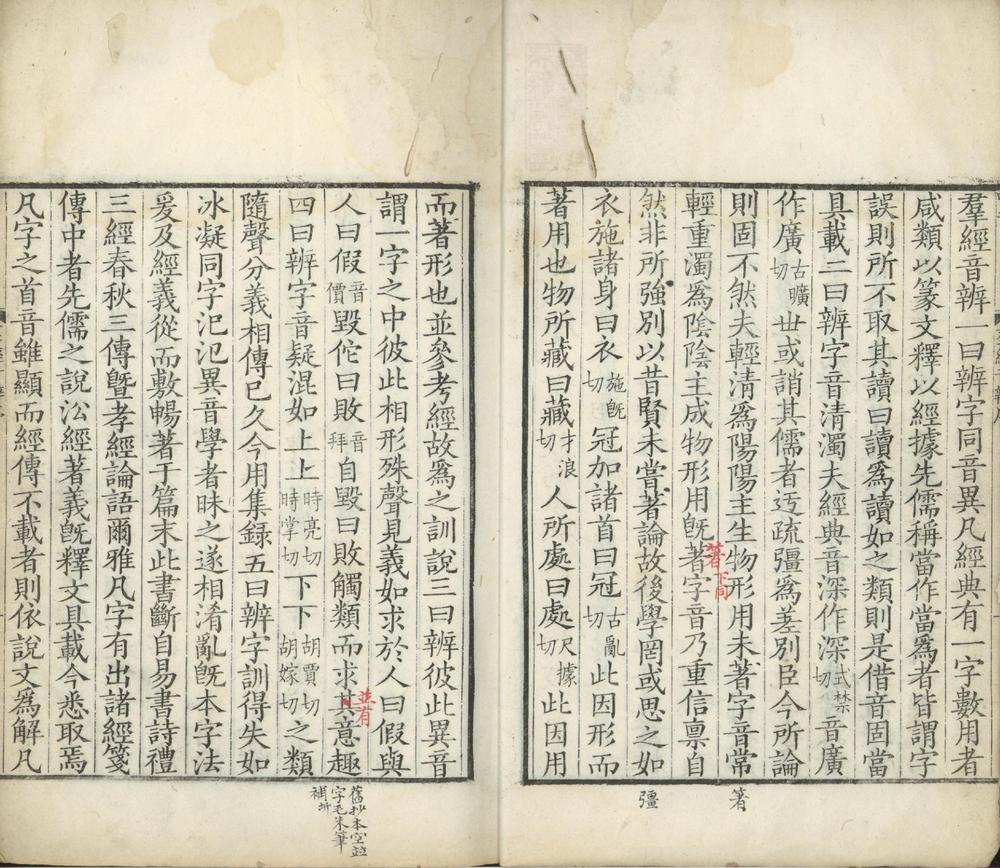 羣經音辨一曰辨字同音異凡經典有一字數用者
咸類以篆文釋以經據先儒稱當作當爲者皆謂字
誤則所不取其讀曰讀爲讀如之類則是借音固當
具載二曰辨字音清濁夫經典音深作深式禁切音廣
作廣古曠切世或誚其儒者迃疏彊爲差別臣今所論
則固不然夫輕清爲陽陽主生物形用未著字音常
輕重濁爲陰陰主成物形用旣著字音乃重信稟自
然非所強別以昔賢未嘗著論故後學罔或思之如
衣施諸身曰衣施旣切冠加諸首曰冠古亂切此因形而
著用也物所藏曰藏才浪切人所處曰處尺據切此因用
著下同
箸
彊
而著形也並參考經故爲之訓說三曰辨彼此異音
謂一字之中彼此相形殊聲見義如求於人曰假與
人曰假音價毀佗曰敗音拜自毀曰敗觸類而求其意趣
四曰辨字音疑混如上上時亮切時掌切下下胡賈切胡嫁切之類
隨聲分義相傳已久今用集録五曰辨字訓得失如
冰凝同字汜汜異音學者昧之遂相淆亂旣本字法
爰及經義從而敷暢著于篇末此書斷自易書詩禮
三經春秋三傳曁孝經論語爾雅凡字有出諸經箋
傳中者先儒之說㳂經著義旣釋文具載今悉取焉
凡字之首音雖顯而經傳不載者則依說文爲解凡
並有
舊抄本空並
字毛朱筆
補